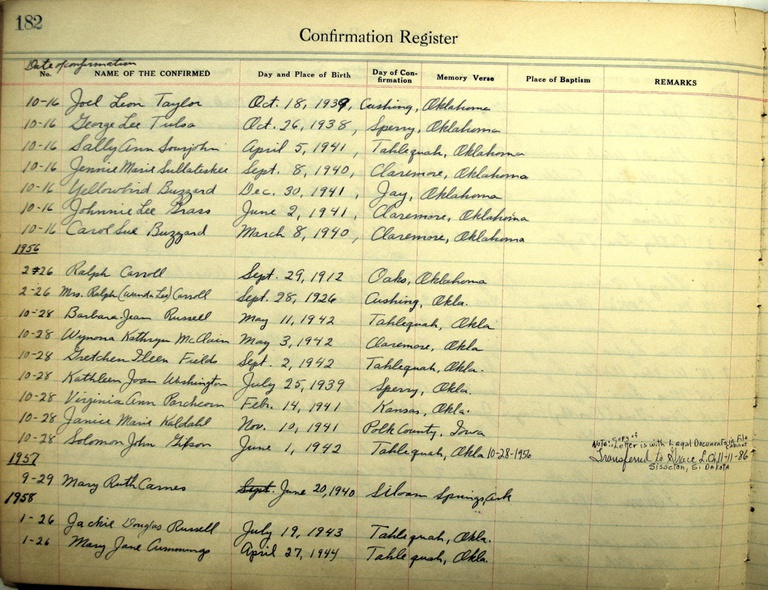 182
Confirmation Register
Date of confirmation
No. NAME OF THE CONFIRMED Day and Place of Birth Day of Con-firmation Memory Verse Place of Baptism REMARKS
10-16 Joel Leon Taylor Oct. 18, 1939, Cushing, Oklahoma
10-16 George Lee Tulsa Oct. 26, 1938, Sperry, Oklahoma
10-16 Sally Ann Sourjohn April 5, 1941, Tahlequah, Oklahoma
10-16 Jennie Marie Sullateskee Sept. 8, 1940, Claremore, Oklahoma
10-16 Yellowbird Buzzard Dec. 30, 1941, Jay, Oklahoma
10-16 Johnnie Lee Grass June 2, 1941, Claremore, Oklahoma
10-16 Carol Sue Buzzard March 8, 1940, Claremore, Oklahoma
1956
2-26 Ralph Carroll Sept. 29, 1912 Oaks, Oklahoma
2-26 Mrs. Ralph (Wanda Lee) Carroll Sept. 28, 1926 Cushing, Okla.
10-28 Barbara Jean Russell May 11, 1942 Tahlequah, Okla
10-28 Wynona Kathryn McClain May 3, 1942 Claremore, Okla
10-28 Gretchen Ileen Fields Sept. 2, 1942 Tahlequah, Okla.
10-28 Kathleen Joan Washington July 25, 1939 Sperry, Okla.
10-28 Virginia Ann Parchcorn Febr. 14, 1941 Kansas, Okla.
10-28 Janice Marie Kaldahl Nov. 10, 1941 Polk County, Iowa
10-28 Solomon John Gibson June 1, 1942 Tahlequah, Okla 10-28-1956
Note: Copy of Letter is with Legal Documents in File
Transferred to Grace L.C. 11-11-86
Sisseton, S. Dakota
1957
9-29 Mary Ruth Carnes Sept. June 20, 1940 Siloam Springs, Ark
1958
1-26 Jackie Douglas Russell July 19, 1943 Tahlequah, Okla.
1-26 Mary Jane Cummings April 27, 1944 Tahlequah, Okla.